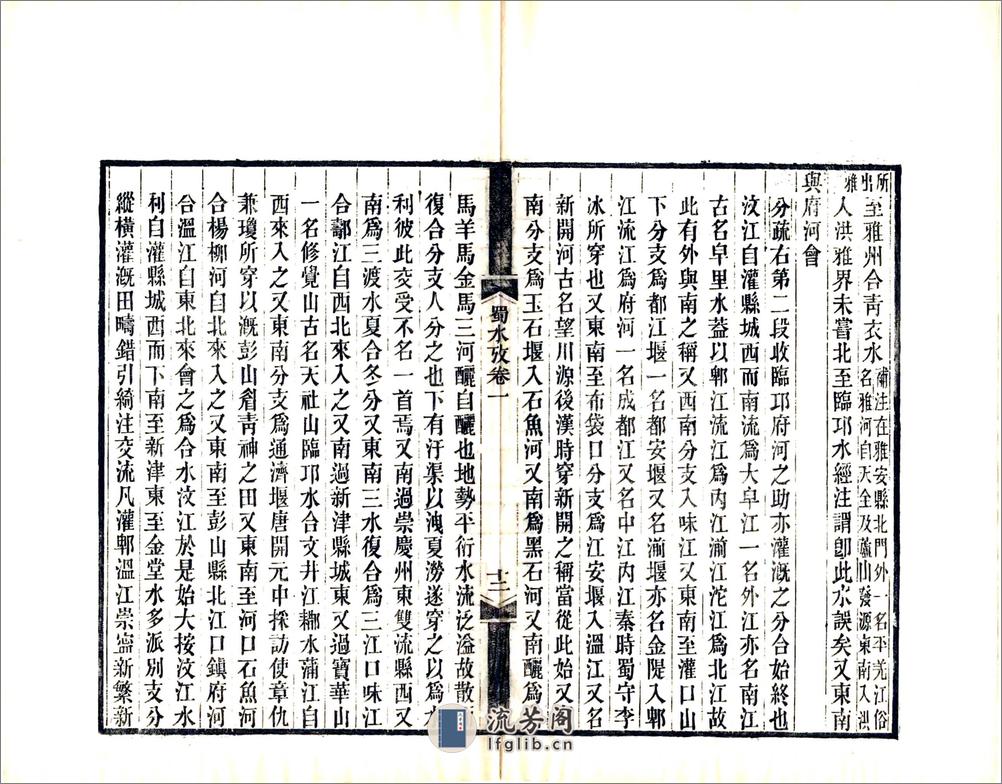 所出至雅州合青衣水蘭注在雅安縣北門外一名平羌江俗名雅河自天全及蘆山發源東南入洪
雅入洪雅界未嘗北至臨邛水經注謂卽此水誤矣又東南
與府河會
分疏右第二段收臨邛府河之助亦灌漑之分合始終也
汶江自灌縣城西而南流爲大皁江一名外江亦名南江
古名皁里水葢以郫江流江爲內江湔江沱江爲北江故
此有外與南之稱又西南分支入味江又東南至灌口山
下分支爲都江堰一名都安堰又名湔堰亦名金隄入郫
江流江爲府河一名成都江又名中江內江秦時蜀守李
冰所穿也又東南至布袋口分支爲江安堰入溫江又名
新開河古名望川源後漢時穿新開之稱當從此始又東
南分支爲玉石堰入石魚河又南爲黑石河又南釃爲
馬羊馬金馬三河釃自釃也地勢平衍水流泛溢故散
復合分支人分之也下有汙渠以洩夏澇遂穿之以爲水
利彼此交受不名一首焉又南過崇慶州東雙流縣西又
南爲三渡水夏合冬分又東南三水復合爲三江口味江
合鄩江自西北來入之又南過新津縣城東又過寶華山
一名修覺山古名天社山臨邛水合文井江䣕水蒲江自
西來入之又東南分支爲通濟堰唐開元中採訪使章仇
兼瓊所穿以漑彭山眉青神之田又東南至河口石魚河
合楊柳河自北來入之又東南至彭山縣北江口鎮府河
合溫江自東北來會之爲合水汶江於是始大按汶江水
利自灌縣城西而下南至新津東至金堂水多派別支分
縱橫灌漑田疇錯引綺注交流凡灌郫溫江崇寧新繁新
蜀水攷卷一
十二
流芳阁
lfglib.cn